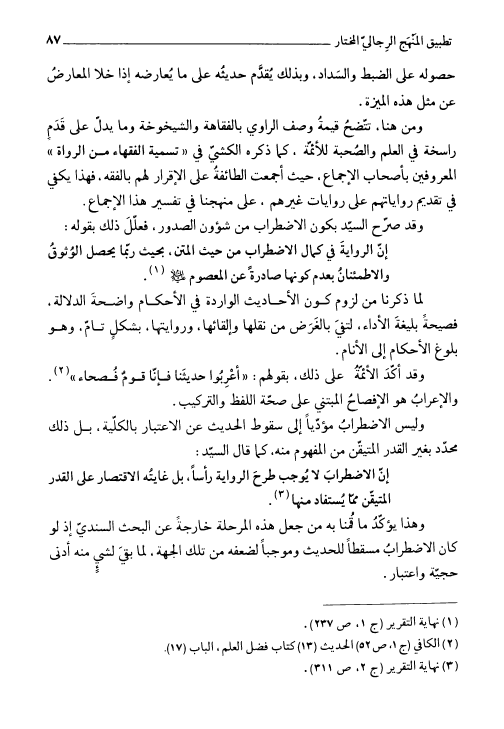 تطبيق المنهج الرجاليّ المختار ــــــــــــــــــــ ٨٧
حصوله على الضبط والسَداد، وبذلك يُقدَّم حديثُه على ما يُعارضه إذا خلا المعارضُ
عن مثل هذه الميزة.
ومن هنا، تتّضحُ قيمةُ وصف الراوي بالفقاهة والشيخوخة وما يدلّ على قَدَمٍ
راسخة في العلم والصُحبة للأئمّة ، كما ذكره الكشيّ في « تسمية الفقهاء مـن الرواة »
المعروفين بأصحاب الإجماع، حيث أجمعت الطائفةُ على الإقرار لهم بالفقه، فهذا يكفي
في تقديم رواياتهم على روايات غيرهم ، على منهجنا في تفسير هذا الإجماع.
وقد صرّح السيّد بكون الاضطراب من شؤون الصدور، فعلّلَ ذلك بقوله :
إنّ الروايةَ في كمال الاضطراب من حيث المتن، بحيث ربّما يحصل الوُثوقُ
والاطمئنانُ بعدم كونها صادرةً عن المعصوم ﷺ (١).
لما ذكرنا من لزوم كـون الأحـاديث الواردة في الأحكـام واضـحةَ الدلالة ،
فصيحةً بليغةَ الأداء، لتفيَ بالغَرَض من نقلها وإلقائها، وروايتها، بشكلٍ تـامّ، وهـو
بلوغ الأحكام إلى الأنام.
وقد أكّدَ الأئمّةُ على ذلك، بقولهم : «أعْرِبُوا حديثَنا فـإنّا قـومٌ فُـصحاء»(٢).
والإعرابُ هو الإفصاحُ المبتني على صحّة اللفظ والتركيب.
وليس الاضطرابُ مؤدّياً إلى سقوط الحديث عن الاعتبار بالكلّية، بـل ذلك
محدّد بغير القدر المتيقّن من المفهوم منه، كما قال السيّد :
إنّ الاضطرابَ لا يُوجب طرحَ الرواية رأساً، بل غايتُه الاقتصار على القدر
المتيقّن ممّا يُستفاد منها(٣).
وهذا يؤكّدُ ما قُمنا به من جعل هذه المرحلة خارجةً عن البحث السنديّ إذ لو
كان الاضطرابُ مسقطاً للحديث وموجباً لضعفه من تلك الجهة، لما بقيَ لشيءٍ منه أدنى
حجيّة واعتبار.
(١) نهاية التقرير (ج ١، ص ٢٣٧).
(٢) الكافي (ج ١، ص ٥٢) الحديث (١٣) كتاب فضل العلم، الباب (١٧).
(٣) نهاية التقرير (ج ٢، ص ٣١١).